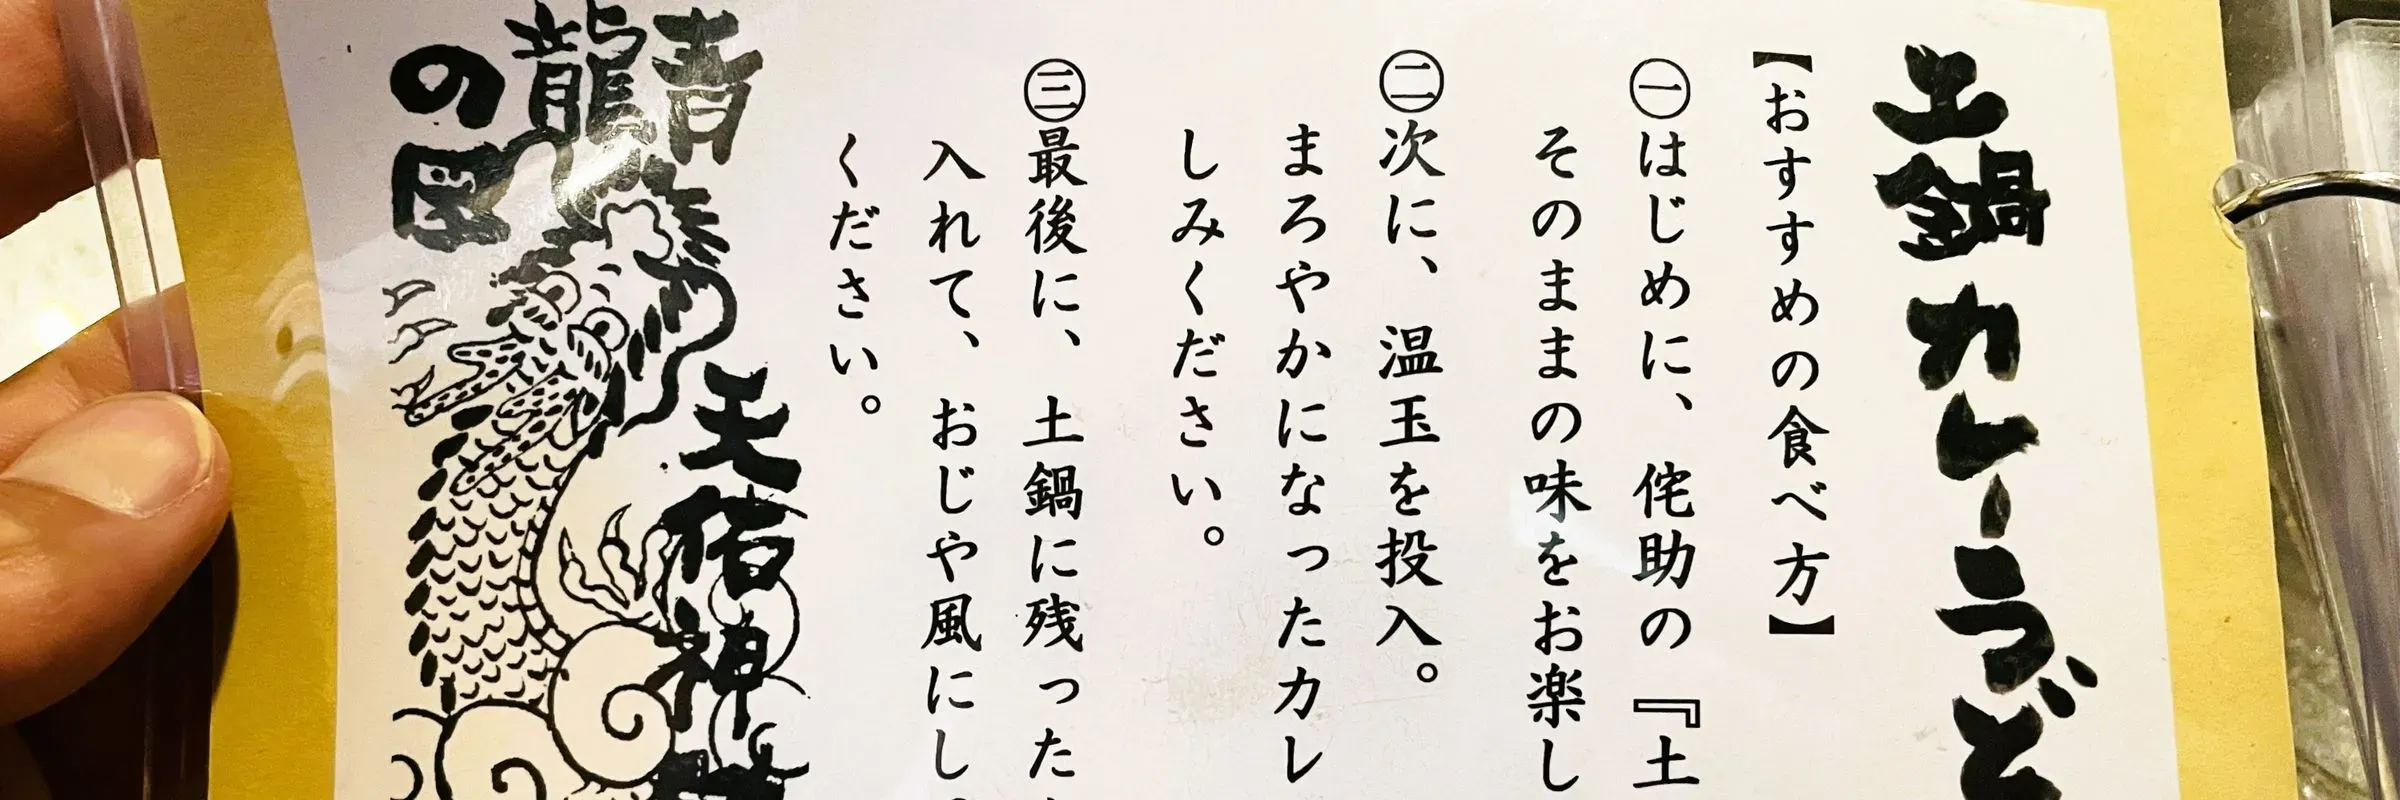 土鍋カレーうど
【おすすめの食べ方】
㊀はじめに、侘助の『土
そのままの味をお楽し
㊁次に、温玉を投入。
まろやかになったカレ
しみください。
㊂最後に、土鍋に残った
入れて、おじや風にし
ください。
天佑神
青龍の図